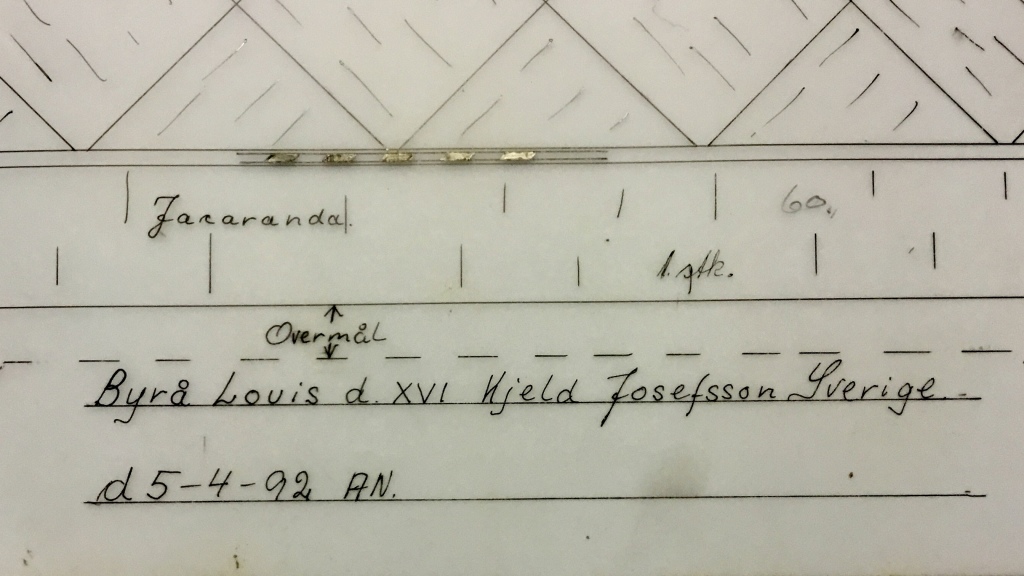 Jacaranda.
60,,
1. stk.
Overmål
Byrå Louis d. XVI Kjeld Josefsson Sverige.
d 5-4-92 AN.